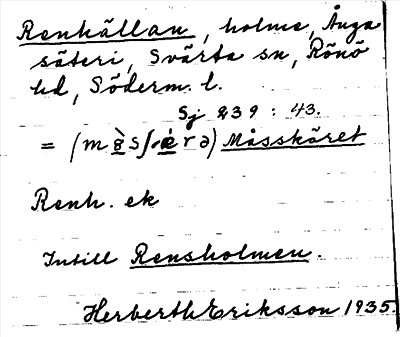 Renhällan, holme, Ånga
säteri, Svärta sn, Rönö
hd, Söderm. l.
Sj 239 : 43.
= (mə̀sʃ-ǽrə) Måsskäret
Renh. ek
Intill Rensholmen.
Herberth Eriksson 1935.